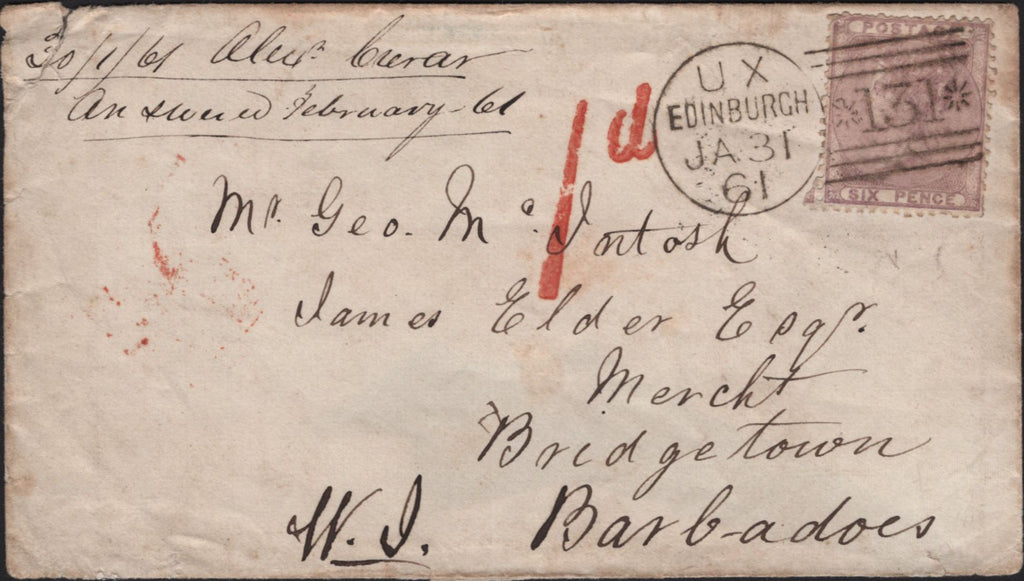 30/1/61 Alexr. Curar
Answered February 61
1d
UX
EDINBURGH
JA 31
61
POSTAGE
131
SIX PENCE
Mr. Geo. Mc Intosh
James Elder Esqr.
Mercht
Bridgetown
Barbadoes
W. I.